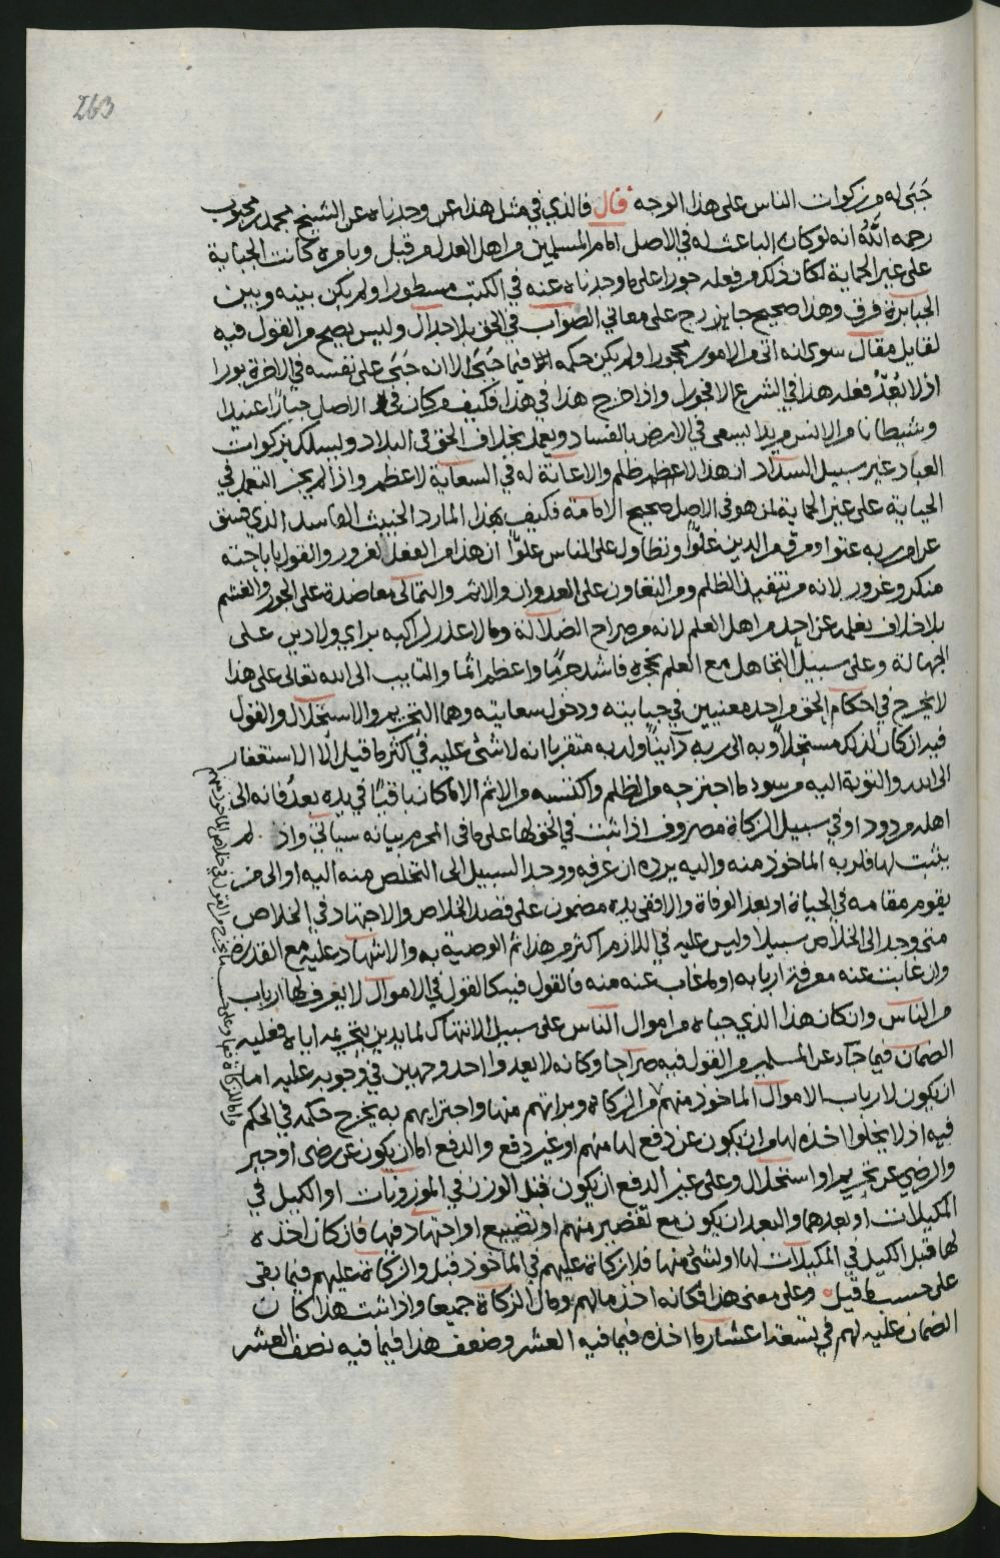 263
جَبَى له من زكوات الناس على هذا الوجه قال فالذي في مثل هذا عن وجدناه عن الشيخ محمد بن محبوب
رحمه اللّٰهُ انه لو كان الباعث له في الاصل امام المسلمين من اهل العدل من قبل وبامره كانت الجباية
على غير الحماية لكان ذلك من فعله جورا على ما وجدناه عنه في الكتب مسطورا ولم يكن بينه وبين
الجبابرة فرق وهذا صحيح جايز رج على معاني الصواب في الحق بلا جدال وليس يصح من القول فيه
لقايل مقال سوى انه اتى من الامور محجورا ولم يكن حكمه فيما جَبَى الا انه جَبَى على نفسه في الاخرة بورا
اذ لا يُعَدُّ فعله هذا في الشرع الا فجورا واذا خرج هذا في هذا فكيف من كان في الاصل جبارا عنيدا
وشيطانا من الانس مريدا يسعى في الارض بالفساد ويعمل بخلاف الحق في البلاد ويسلك بزكوات
العباد غير سبيل السداد ان هذا لاعظم ظلم والاعانة له في السعاية لاعظم واذا لم يجز العمل في
الجباية على غير الحماية لمن هو في الاصل صحيح الامامة فكيف بهذا المارد الخبيث الفاسد الذي فسق
عن امر ربه عتوا ومرق من الدين غلوًّا وتطاول على الناس علوًّا ان هذا من الفعل لغرور والقول باباحته
منكر وغرور لانه من تنفيذ الظلم ومن التعاون على العدوان والاثم والتمالى معاضدة على الجور والغشم
بلا خلاف يعلم عن احد من اهل العلم لانه من صراح الضلالة وما لا عذر لراكبه براي ولا دين على
الجهالة وعلى سبيل التجاهل مع العلم بحجره فاشد جرمًا واعظم اثما والتايب الى الله تعالى على هذا
لا يخرج في احكام الحق من احد معنيين في جبايته ودخول سعايته وهما التحريم والاستحلال والقول
فيه ان كان لذلك مستحلًّا وبه الى ربه دَاينًا ولديه متقربا انه لا شيء عليه في اكثر ما قيل الا الاستغفار
الى الله والتوبة اليه من سود ما اجترحه من الظلم واكتسبه من الاثم الا ما كان باقيًا في يده بعدُ فانه الى
اهله مردود او في سبيل الزكاة مصروف اذا ثبت في الحق لها على ما في المحرم بيانه سياتي واذ لم
يثبت لها فلربه الماخوذ منه واليه يرده ان عرفه ووجد السبيل الى التخلص منه اليه او الى من
يقوم مقامه في الحياة او بعد الوفاة والا ففي يده مضمون على قصد الخلاص والاجتهاد في الخلاص
متى وجد الى الخلاص سبيلا وليس عليه في اللازم اكثر من هذا ثم الوصية به والاشهاد عليه مع القدرة
وان غابت عنه معرفة اربابه او لمن غاب عنه منه فالقول فيه كالقول في الاموال لا يعرف لها ارباب
من الناس وان كان هذا الذي جباه من اموال الناس على سبيل الانتهاك لما يدين بتحريمه اياه فعليه
الضمان فيما جاء عن المسلمين من القول فيه صراحا وكانه لا يعدو احد وجهين في وجوبه عليه اما
ان يكون لارباب الاموال الماخوذ منهم من الزكاة وبراتهم منها واجتزايهم به يخرج حكمه في الحكم
فيه اذ لا يخلوا اخذه لها من ان يكون عن دفع لها منهم او غير دفع والدفع اما ان يكون عن رضى او جبر
والرضى عن تحريم او استحلال وعلى غير الدفع ان يكون قبل الوزن في الموزونات او الكيل في
المكيلات او بعدهما والبعد ان يكون مع تقصير منهم او تضييع او اجتهاد فيها فان كان اخذه
لها قبل الكيل في المكيلات لها او لشيء منها فلا زكاة عليهم في الماخوذ قبل والزكاة عليهم فيما بقى
على حسب ما قيل وعلى معنى هذا فكانه اخذ مالهم ومال الزكاة جميعا واذا ثبت هذا كان
الضمان عليه لهم في تسعة اعشار ما اخذه فيما فيه العشر وضعف هذا فيما فيه نصف العشر